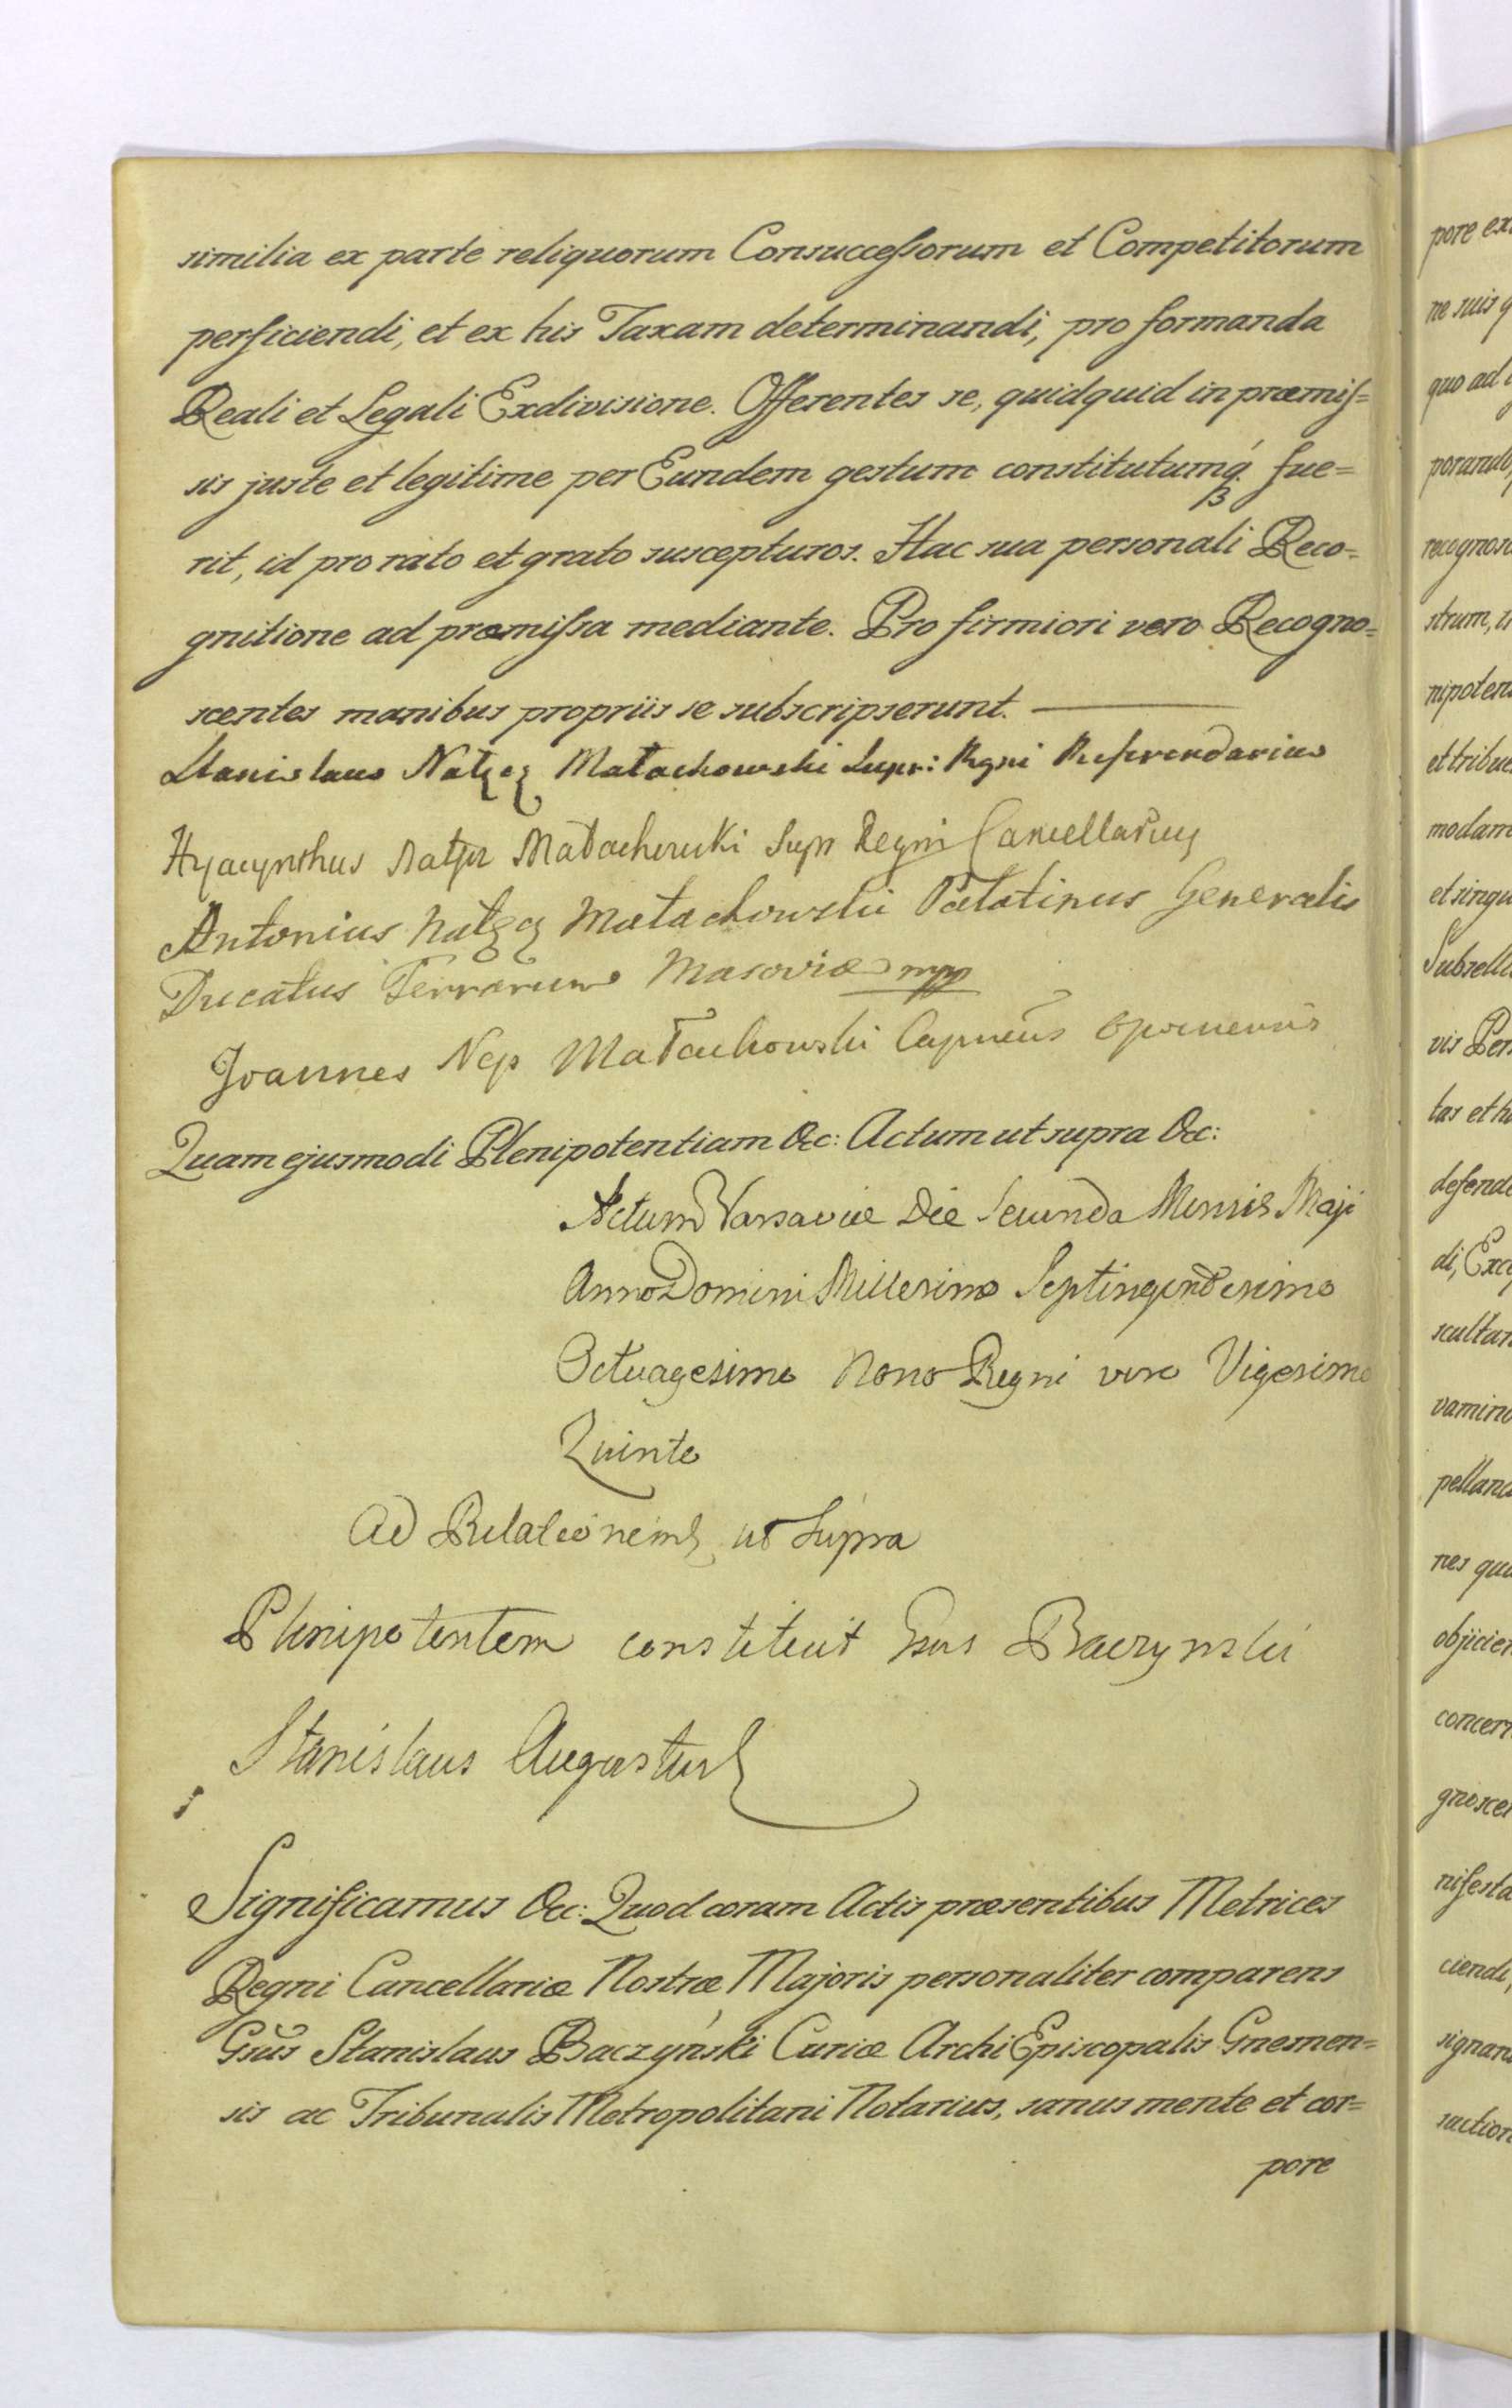 similia ex parte reliquorum Consuccessorum et Competitorum
perficiendi, et ex his Taxam determinandi, pro formanda
Reali et Legali Exdivisione. Offerentes se, quidquid in præmis=
sis juste et legitime per Eundem gestum constitutumq. fue=
rit, id pro rato et grato suscepturos. Hac sua personali Reco=
gnitione ad præmissa mediante. Pro firmiori vero Recogno=
scentes manibus propriis se subscripserunt.
Stanislaus Nałęcz Małachowski Supr: Regni Referendarius
Hyacynthus Małachowski Sup Regni Cancellarius
Antonius Nałęcz Małachowski Palatinus Generalis
Ducatus Terrarum Masoviæ mpp
Joannes Nep Małachowski Capneus
Quam ejusmodi Plenipotentiam &c: Actum ut supra &c:
Actum Varsaviæ Die Secunda Mensis Maji
Anno Domini Millesimo Septingentesimo
Octuagesimo Nono Regni vero Vigesimo
Quinto
Ad Relationem ut Supra
Plenipotentem constituit Gsus Baczynski
Stanislaus Augustus
Significamus &c: Quod coram Actis præsentibus Metrices
Regni Cancellariæ Nostræ Majoris personaliter comparens
Gsus Stanislaus Baczyński Curiæ ArchiEpiscopalis Gnesnen=
sis ac Tribunalis Metropolitani Notarius, sanus mente et cor=
pore